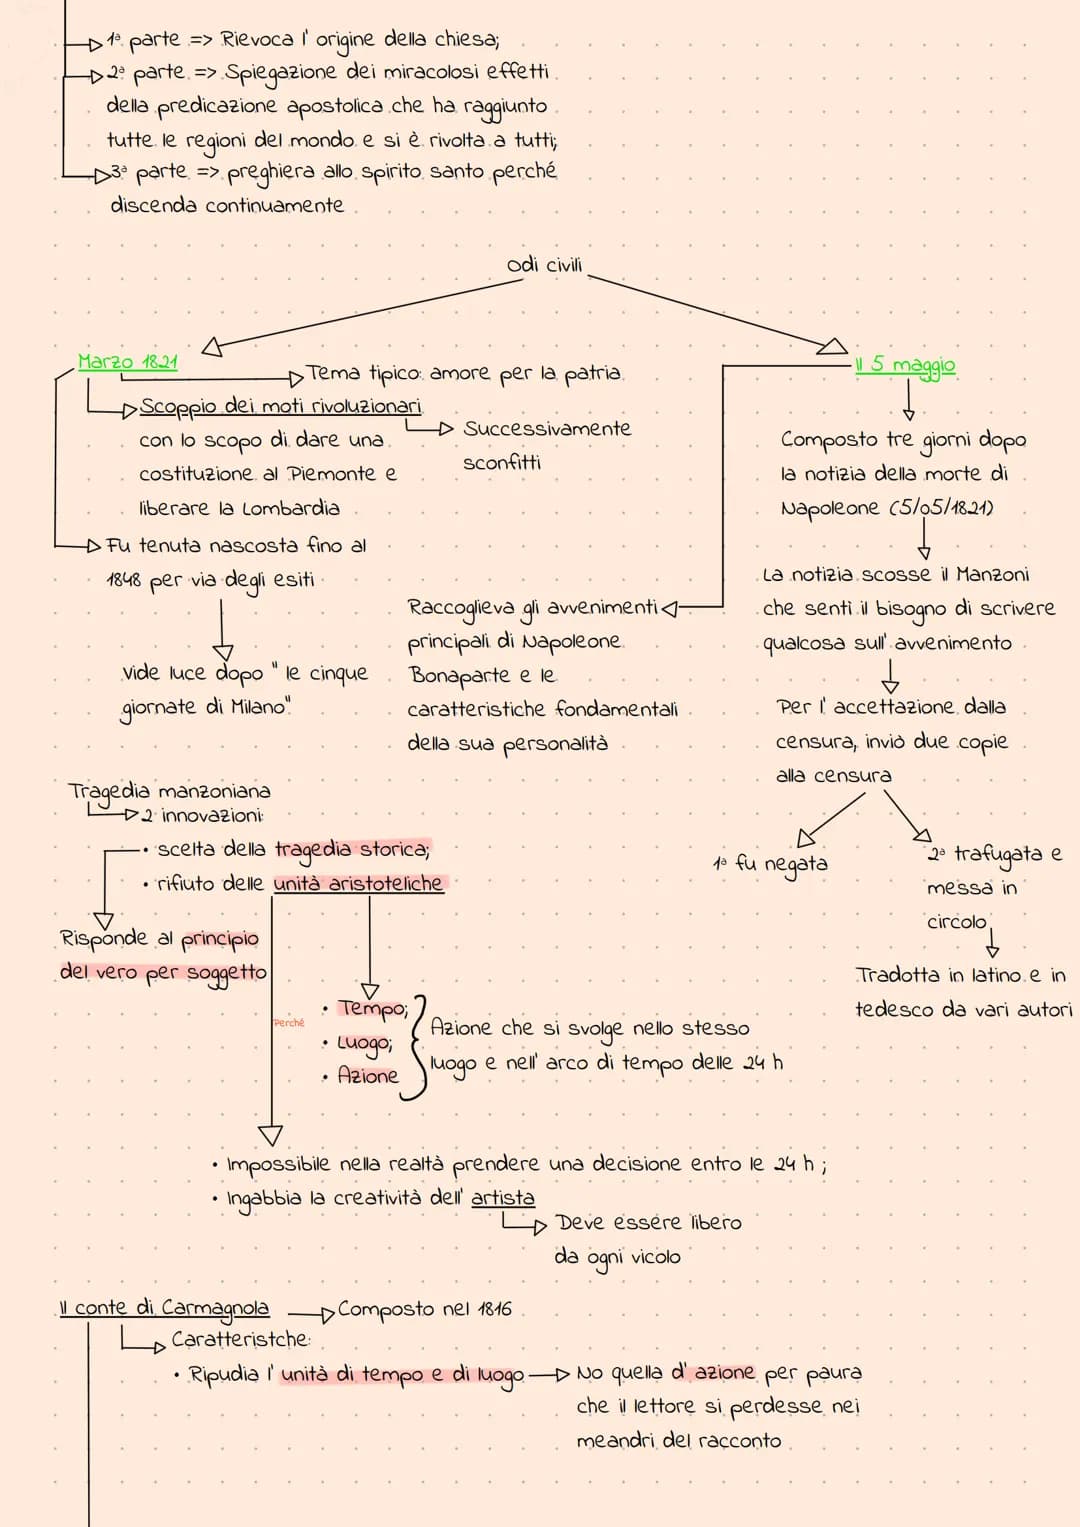 1ª parte => Rievoca l' origine della chiesa;
2ª parte => Spiegazione dei miracolosi effetti
della predicazione apostolica che ha raggiunto
tutte le regioni del mondo e si è rivolta a tutti;
3ª parte => preghiera allo spirito santo perché
discenda continuamente
Odi civili
Marzo 1821
Tema tipico: amore per la patria
Scoppio dei moti rivoluzionari
con lo scopo di dare una
costituzione al Piemonte e
liberare la Lombardia
Successivamente
sconfitti
Fu tenuta nascosta fino al
1848 per via degli esiti
Vide luce dopo " le cinque
giornate di Milano"
Il 5 maggio
Composto tre giorni dopo
la notizia della morte di
Napoleone (5/05/1821)
La notizia scosse il Manzoni
che senti il bisogno di scrivere
qualcosa sull' avvenimento
Raccoglieva gli avvenimenti
principali di Napoleone
Bonaparte e le
caratteristiche fondamentali
della sua personalità
Per l' accettazione dalla
censura, inviò due copie
alla censura
1ª fu negata
2ª trafugata e
messa in
circolo
Tradotta in latino e in
tedesco da vari autori
Tragedia manzoniana
2 innovazioni:
• scelta della tragedia storica;
• rifiuto delle unità aristoteliche
Risponde al principio
del vero per soggetto
Perché
• Tempo;
• Luogo;
• Azione
Azione che si svolge nello stesso
luogo e nell' arco di tempo delle 24 h
• Impossibile nella realtà prendere una decisione entro le 24 h ;
• Ingabbia la creatività dell' artista
Deve essere libero
da ogni vicolo
Il conte di Carmagnola
Composto nel 1816
Caratteristche:
• Ripudia l' unità di tempo e di luogo
No quella d' azione per paura
che il lettore si perdesse nei
meandri del racconto